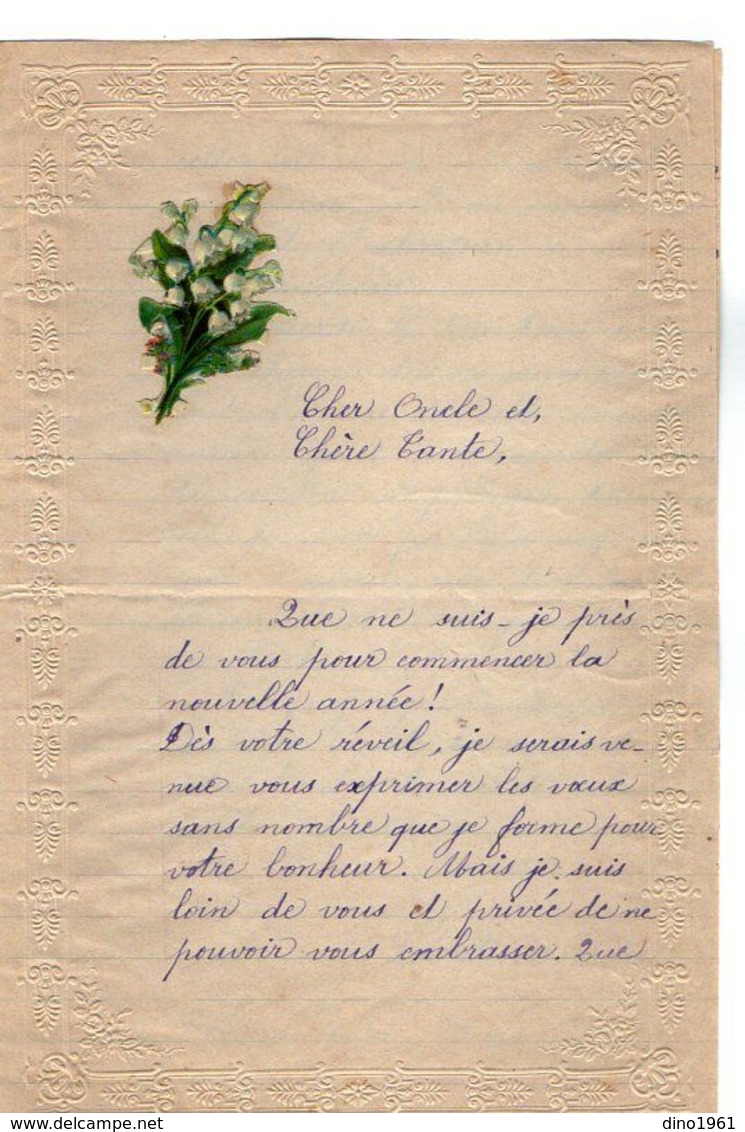 Cher Oncle et,
Chère Tante,
Que ne suis-je près
de vous pour commencer la
nouvelle année!
Dès votre réveil, je serais ve-
nue vous exprimer les vœux
sans nombre que je forme pour
votre bonheur. Mais je suis
loin de vous et privée de ne
pouvoir vous embrasser. Que
© www.delcampe.net
dino1961